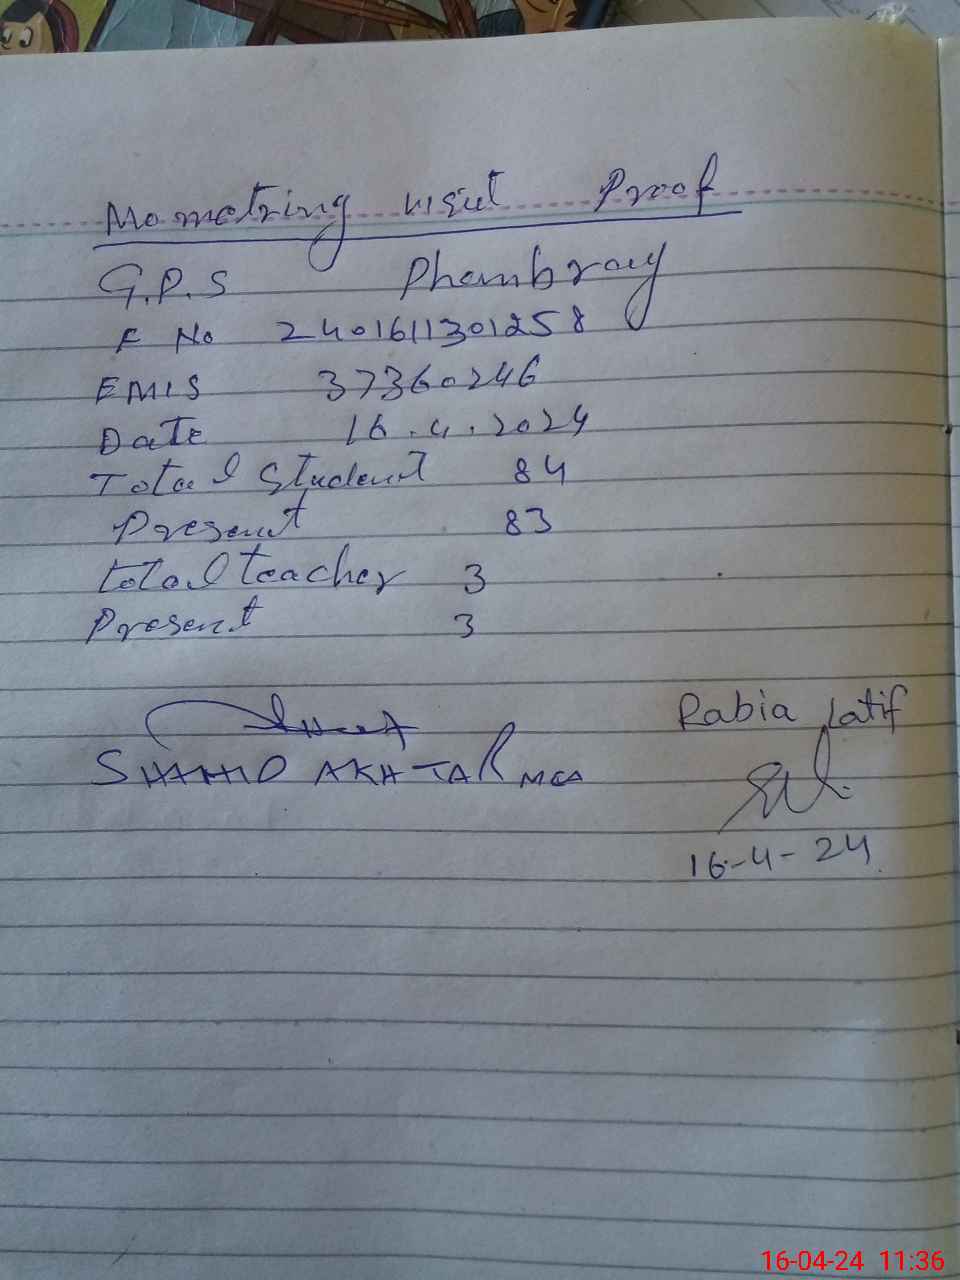 Mometring visit Proof
G.P.S Phambray
F No 2401611301258
EMIS 37360246
Date 16.4.2024
Total Student 84
Present 83
total teacher 3
Present 3
SHAHID AKHTAR MEA
Rabia Latif
16-4-24
16-04-24 11:36